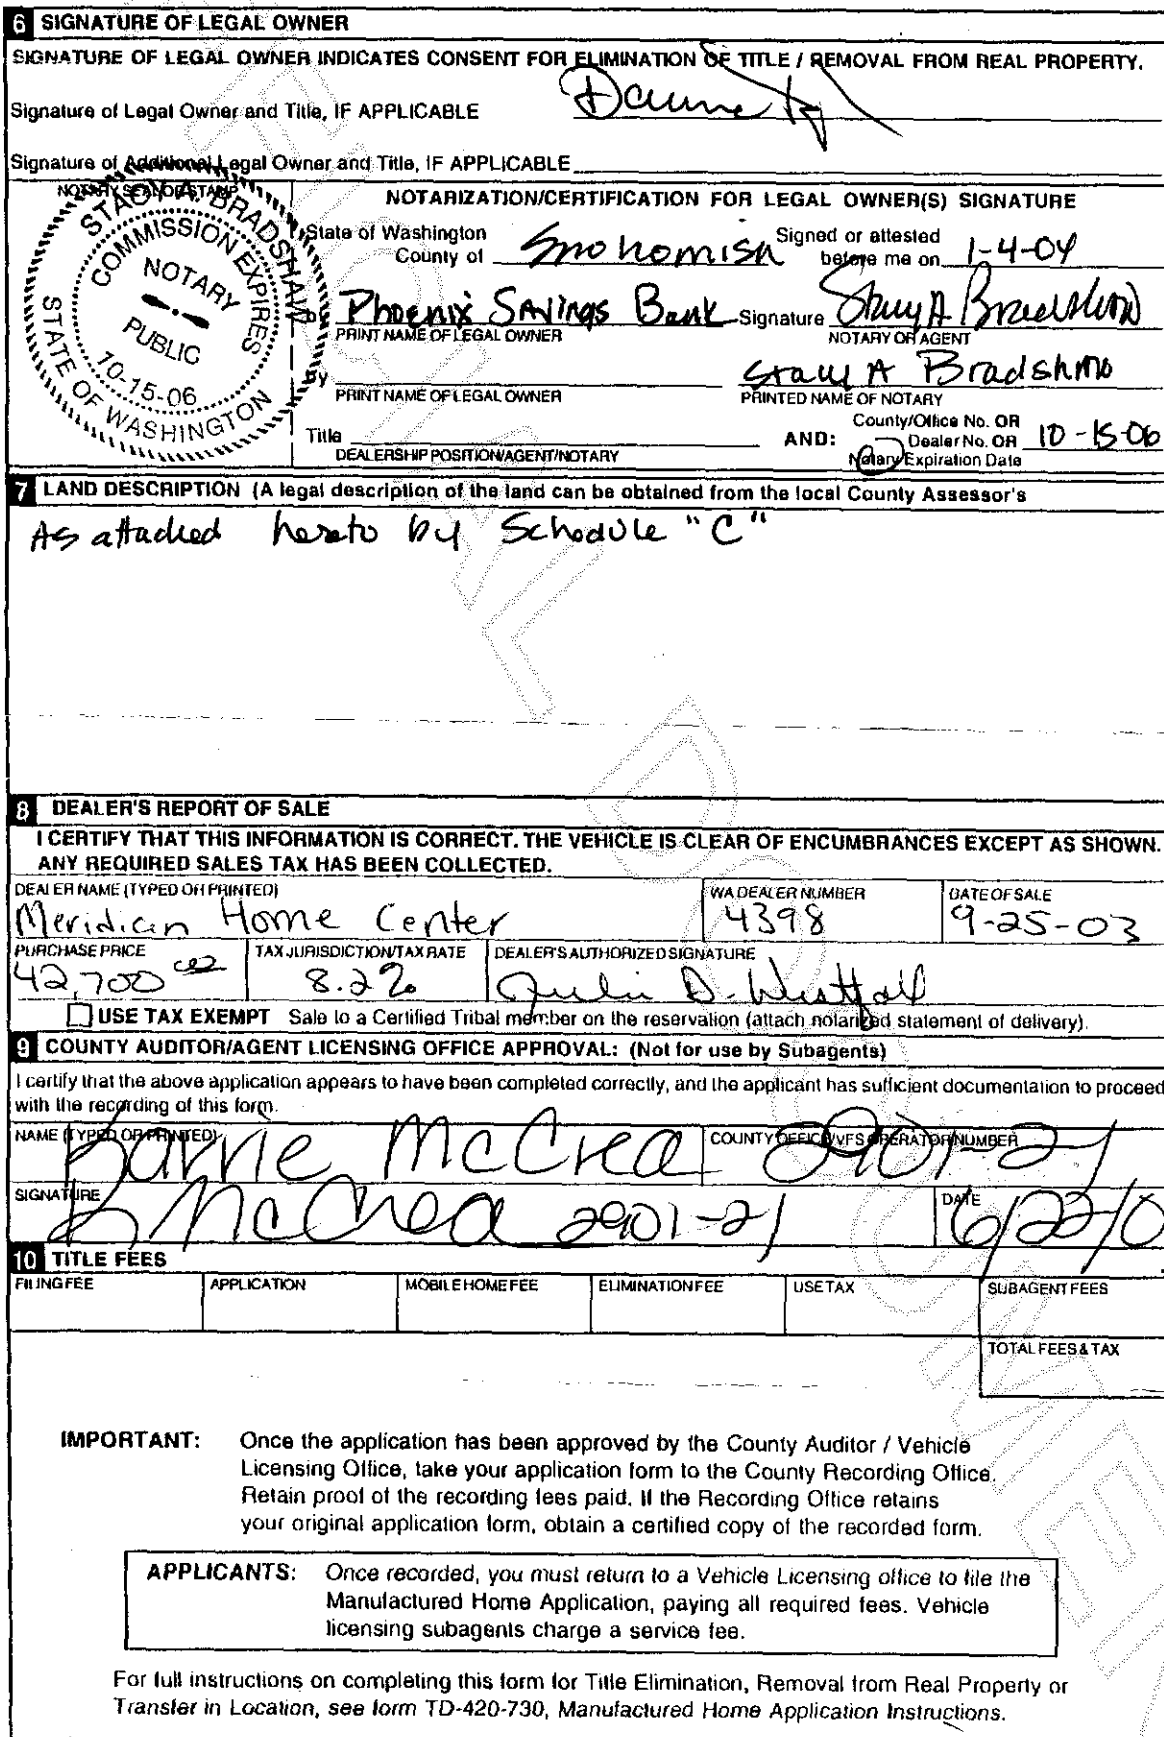 6 SIGNATURE OF LEGAL OWNER
SIGNATURE OF LEGAL OWNER INDICATES CONSENT FOR ELIMINATION OF TITLE / REMOVAL FROM REAL PROPERTY.
Signature of Legal Owner and Title, IF APPLICABLE
Signature of Additional Legal Owner and Title, IF APPLICABLE
NOTARY SEAL OR STAMP
STACY A. BRADSHAW
COMMISSION EXPIRES
NOTARY
PUBLIC
10-15-06
STATE OF WASHINGTON
NOTARIZATION/CERTIFICATION FOR LEGAL OWNER(S) SIGNATURE
State of Washington
County of Snohomish Signed or attested before me on 1-4-04
Phoenix Savings Bank Signature Stacy A Bradshaw
PRINT NAME OF LEGAL OWNER NOTARY OR AGENT
By Stacy A Bradshaw
PRINT NAME OF LEGAL OWNER PRINTED NAME OF NOTARY
Title AND: County/Office No. OR Dealer No. OR Notary Expiration Date 10-15-06
DEALERSHIP POSITION/AGENT/NOTARY
7 LAND DESCRIPTION (A legal description of the land can be obtained from the local County Assessor's
As attached hereto by Schedule "C"
8 DEALER'S REPORT OF SALE
I CERTIFY THAT THIS INFORMATION IS CORRECT. THE VEHICLE IS CLEAR OF ENCUMBRANCES EXCEPT AS SHOWN.
ANY REQUIRED SALES TAX HAS BEEN COLLECTED.
DEALER NAME (TYPED OR PRINTED) WA DEALER NUMBER DATE OF SALE
Meridian Home Center 4398 9-25-03
PURCHASE PRICE TAX JURISDICTION/TAX RATE DEALER'S AUTHORIZED SIGNATURE
42,700 8.2% Julie D. Westfall
USE TAX EXEMPT Sale to a Certified Tribal member on the reservation (attach notarized statement of delivery).
9 COUNTY AUDITOR/AGENT LICENSING OFFICE APPROVAL: (Not for use by Subagents)
I certify that the above application appears to have been completed correctly, and the applicant has sufficient documentation to proceed
with the recording of this form.
NAME (TYPED OR PRINTED) COUNTY OFFICE/VFS OPERATOR NUMBER
Karrie McCrea 2901-21
SIGNATURE DATE
K McCrea 2901-21 6/22/0
10 TITLE FEES
FILING FEE APPLICATION MOBILE HOME FEE ELIMINATION FEE USE TAX SUBAGENT FEES
TOTAL FEES & TAX
IMPORTANT: Once the application has been approved by the County Auditor / Vehicle
Licensing Office, take your application form to the County Recording Office.
Retain proof of the recording fees paid. If the Recording Office retains
your original application form, obtain a certified copy of the recorded form.
APPLICANTS: Once recorded, you must return to a Vehicle Licensing office to file the
Manufactured Home Application, paying all required fees. Vehicle
licensing subagents charge a service fee.
For full instructions on completing this form for Title Elimination, Removal from Real Property or
Transfer in Location, see form TD-420-730, Manufactured Home Application Instructions.